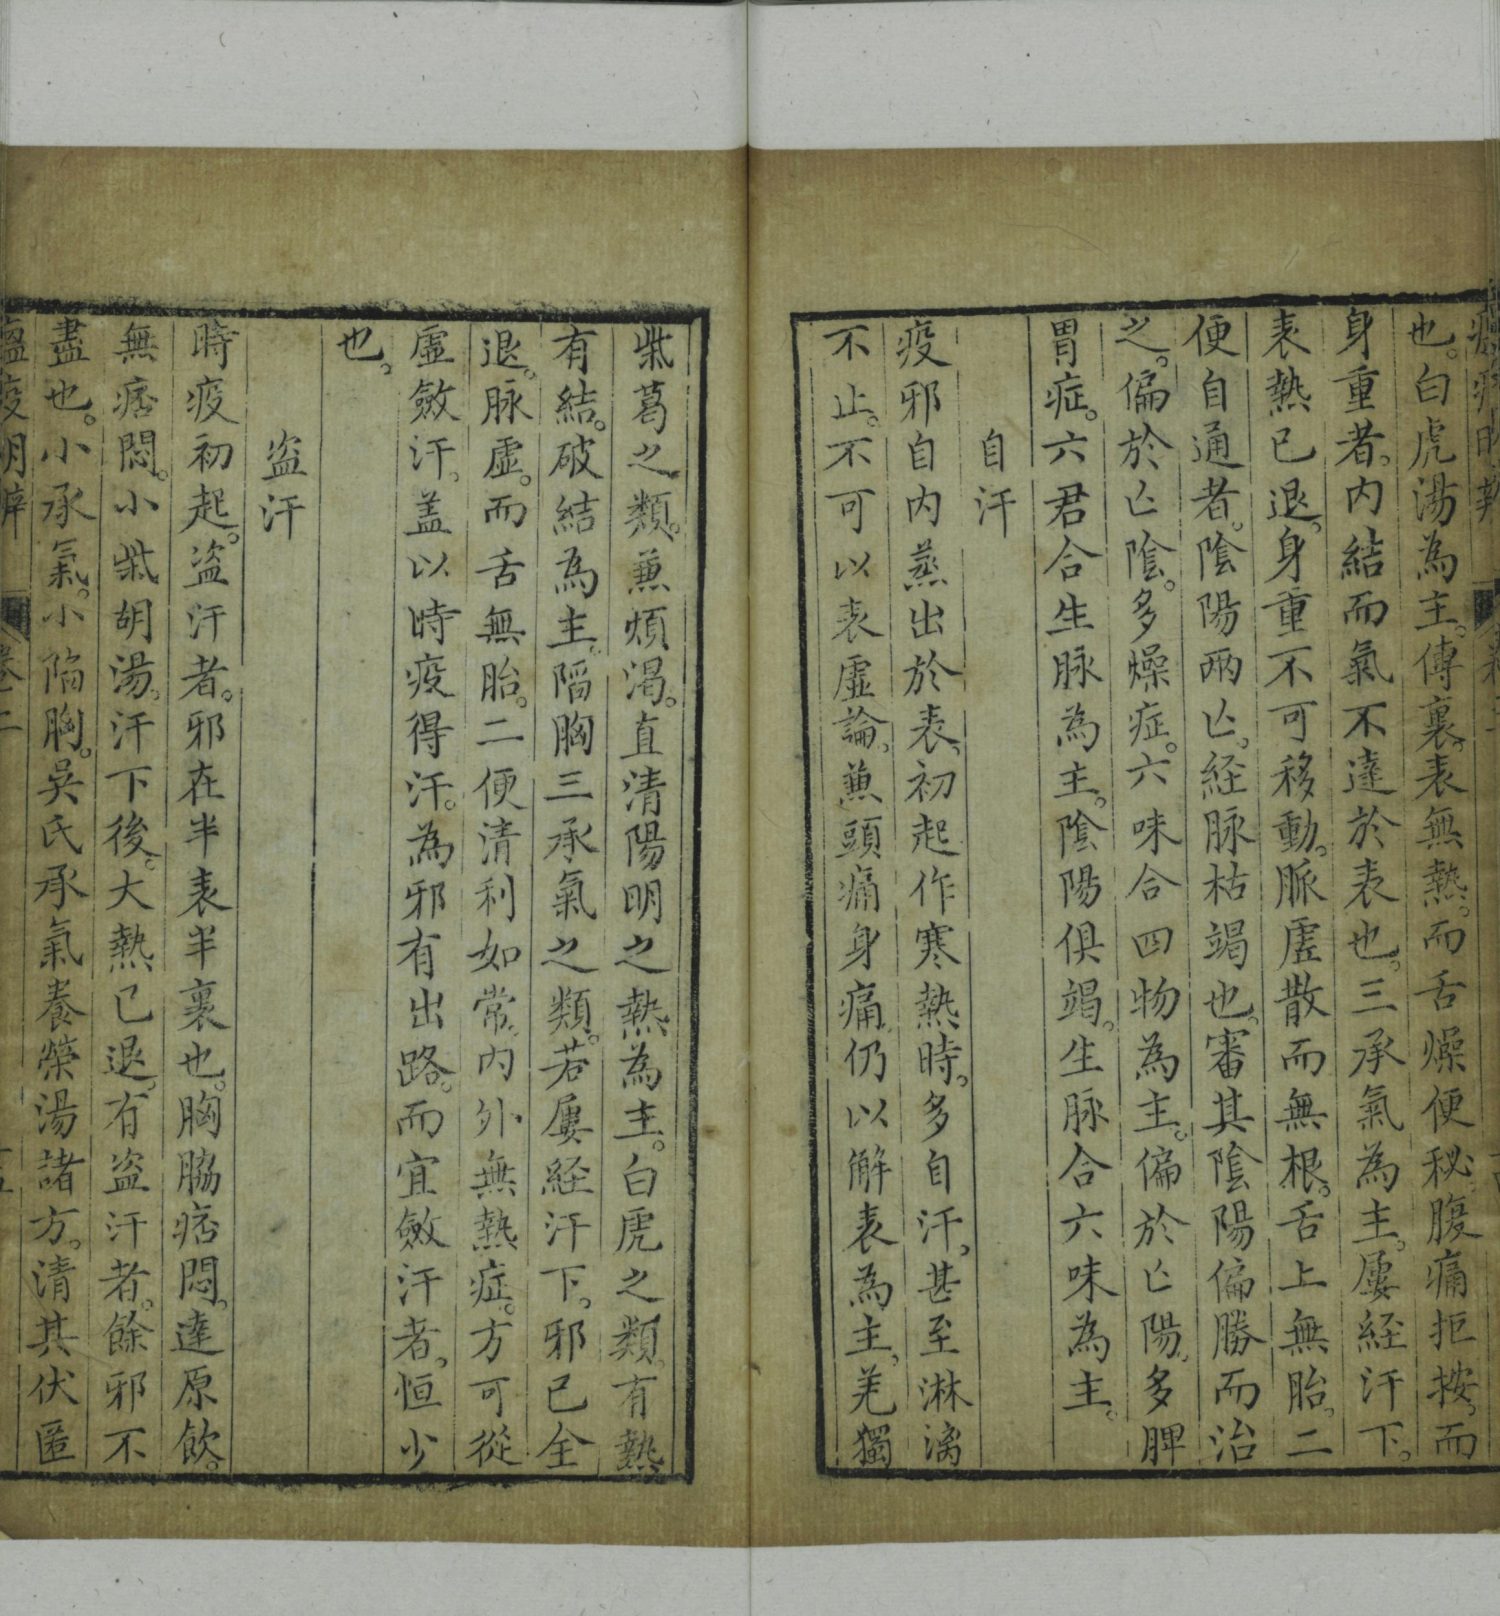 瘟疫明辨
卷二
也。白虎湯為主。傳裏。表無熱。而舌燥便秘腹痛拒按。而
身重者。內結而氣不達於表也。三承氣為主。屢經汗下。
表熱已退。身重不可移動。脈虛散而無根。舌上無胎。二
便自通者。陰陽兩亾。經脉枯竭也。審其陰陽偏勝而治
之。偏於亾陰。多燥症。六味合四物為主。偏於亾陽。多脾
胃症。六君合生脉為主。陰陽俱竭。生脉合六味為主。
自汗
疫邪自內蒸出於表。初起作寒熱時。多自汗。甚至淋漓
不止。不可以表虛論。兼頭痛身痛。仍以解表為主。羌獨
柴葛之類。兼煩渴。直清陽明之熱為主。白虎之類。有熱
有結。破結為主。陷胸三承氣之類。若屢経汗下。邪已全
退。脉虛。而舌無胎。二便清利如常。內外無熱症。方可從
虛斂汗。盖以時疫得汗。為邪有出路。而宜斂汗者。恒少
也。
盗汗
時疫初起。盗汗者。邪在半表半裏也。胸脇痞悶。達原飲。
無痞悶。小柴胡湯。汗下後。大熱已退。有盗汗者。餘邪不
盡也。小承氣。小陷胸。吳氏承氣養榮湯諸方。清其伏匿
瘟疫明辨
卷二